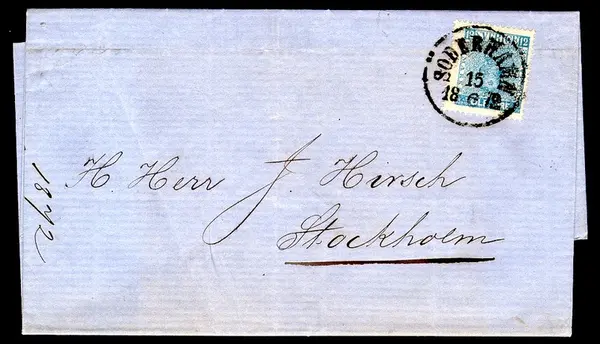 12 12
SÖDERHAMN
15
18 6 72
H Herr J. Hirsch
Stockholm
1872